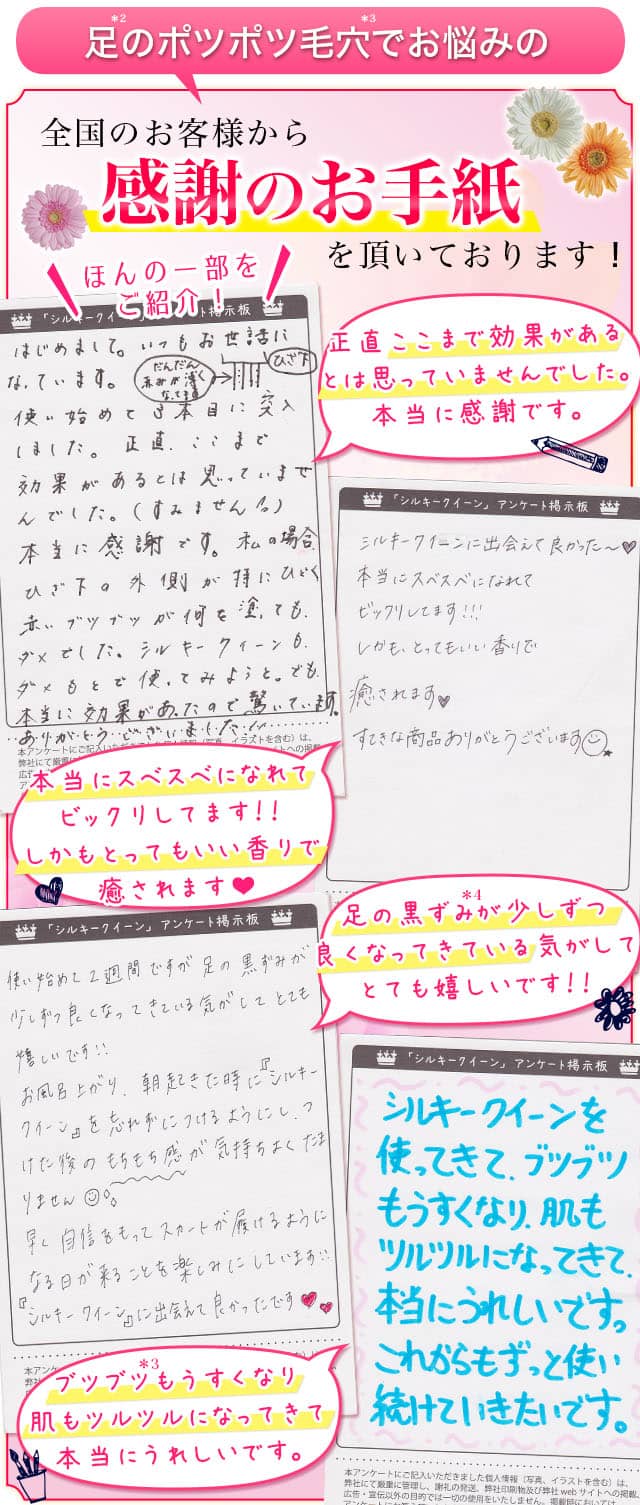 足のポツポツ毛穴でお悩みの
*2
*3
全国のお客様から
感謝のお手紙
を頂いております！
ほんの一部を
ご紹介！
「シルキークイーン」アンケート掲示板
はじめまして。いつもお世話に
なっています。
だんだん
赤みが薄く
なってます
ひざ下
使い始めて3本目に突入
しました。正直、ここまで
効果があるとは思っていませ
んでした。(すみません
本当に感謝です。私の場合、
ひざ下の外側が特にひどく
赤いブツブツが何を塗っても、
ダメでした。シルキークイーンも、
ダメもとで使ってみようと。でも、
本当に効果があったので驚いています。
ありがとうございました!!
本アンケートにご記入いただきました個人情報（写真、イラストを含む）は、
正直ここまで効果がある
とは思っていませんでした。
本当に感謝です。
「シルキークイーン」アンケート掲示板
シルキークイーンに出会えて良かった〜♥
本当にスベスベになれて
ビックリしてます!!!
しかも、とってもいい香りで
癒されます♥
すてきな商品ありがとうございます☺
本当にスベスベになれて
ビックリしてます!!
しかもとってもいい香りで
癒されます♥
*4
足の黒ずみが少しずつ
良くなってきている気がして
とても嬉しいです!!
「シルキークイーン」アンケート掲示板
使い始めて2週間ですが足の黒ずみが
少しずつ良くなってきている気がしてとても
嬉しいです!!
お風呂上がり、朝起きた時に『シルキー
クイーン』を忘れずにつけるようにし、つ
けた後のもちもち感が気持ちよくたま
りません☺
早く自信をもってスカートが履けるように
なる日が来ることを楽しみにしています!!
『シルキークイーン』に出会えて良かったです♥♥
「シルキークイーン」アンケート掲示板
シルキークイーンを
使ってきて、ブツブツ
もうすくなり、肌も
ツルツルになってきて、
本当にうれしいです。
これからもずっと使い
続けていきたいです。
*3
ブツブツもうすくなり
肌もツルツルになってきて
本当にうれしいです。
本アンケートにご記入いただきました個人情報（写真、イラストを含む）は、
弊社にて厳重に管理し、謝礼の発送、弊社印刷物及び弊社 web サイトへの掲載、
広告・宣伝以外の目的では一切の使用をいたしません。掲載時においては